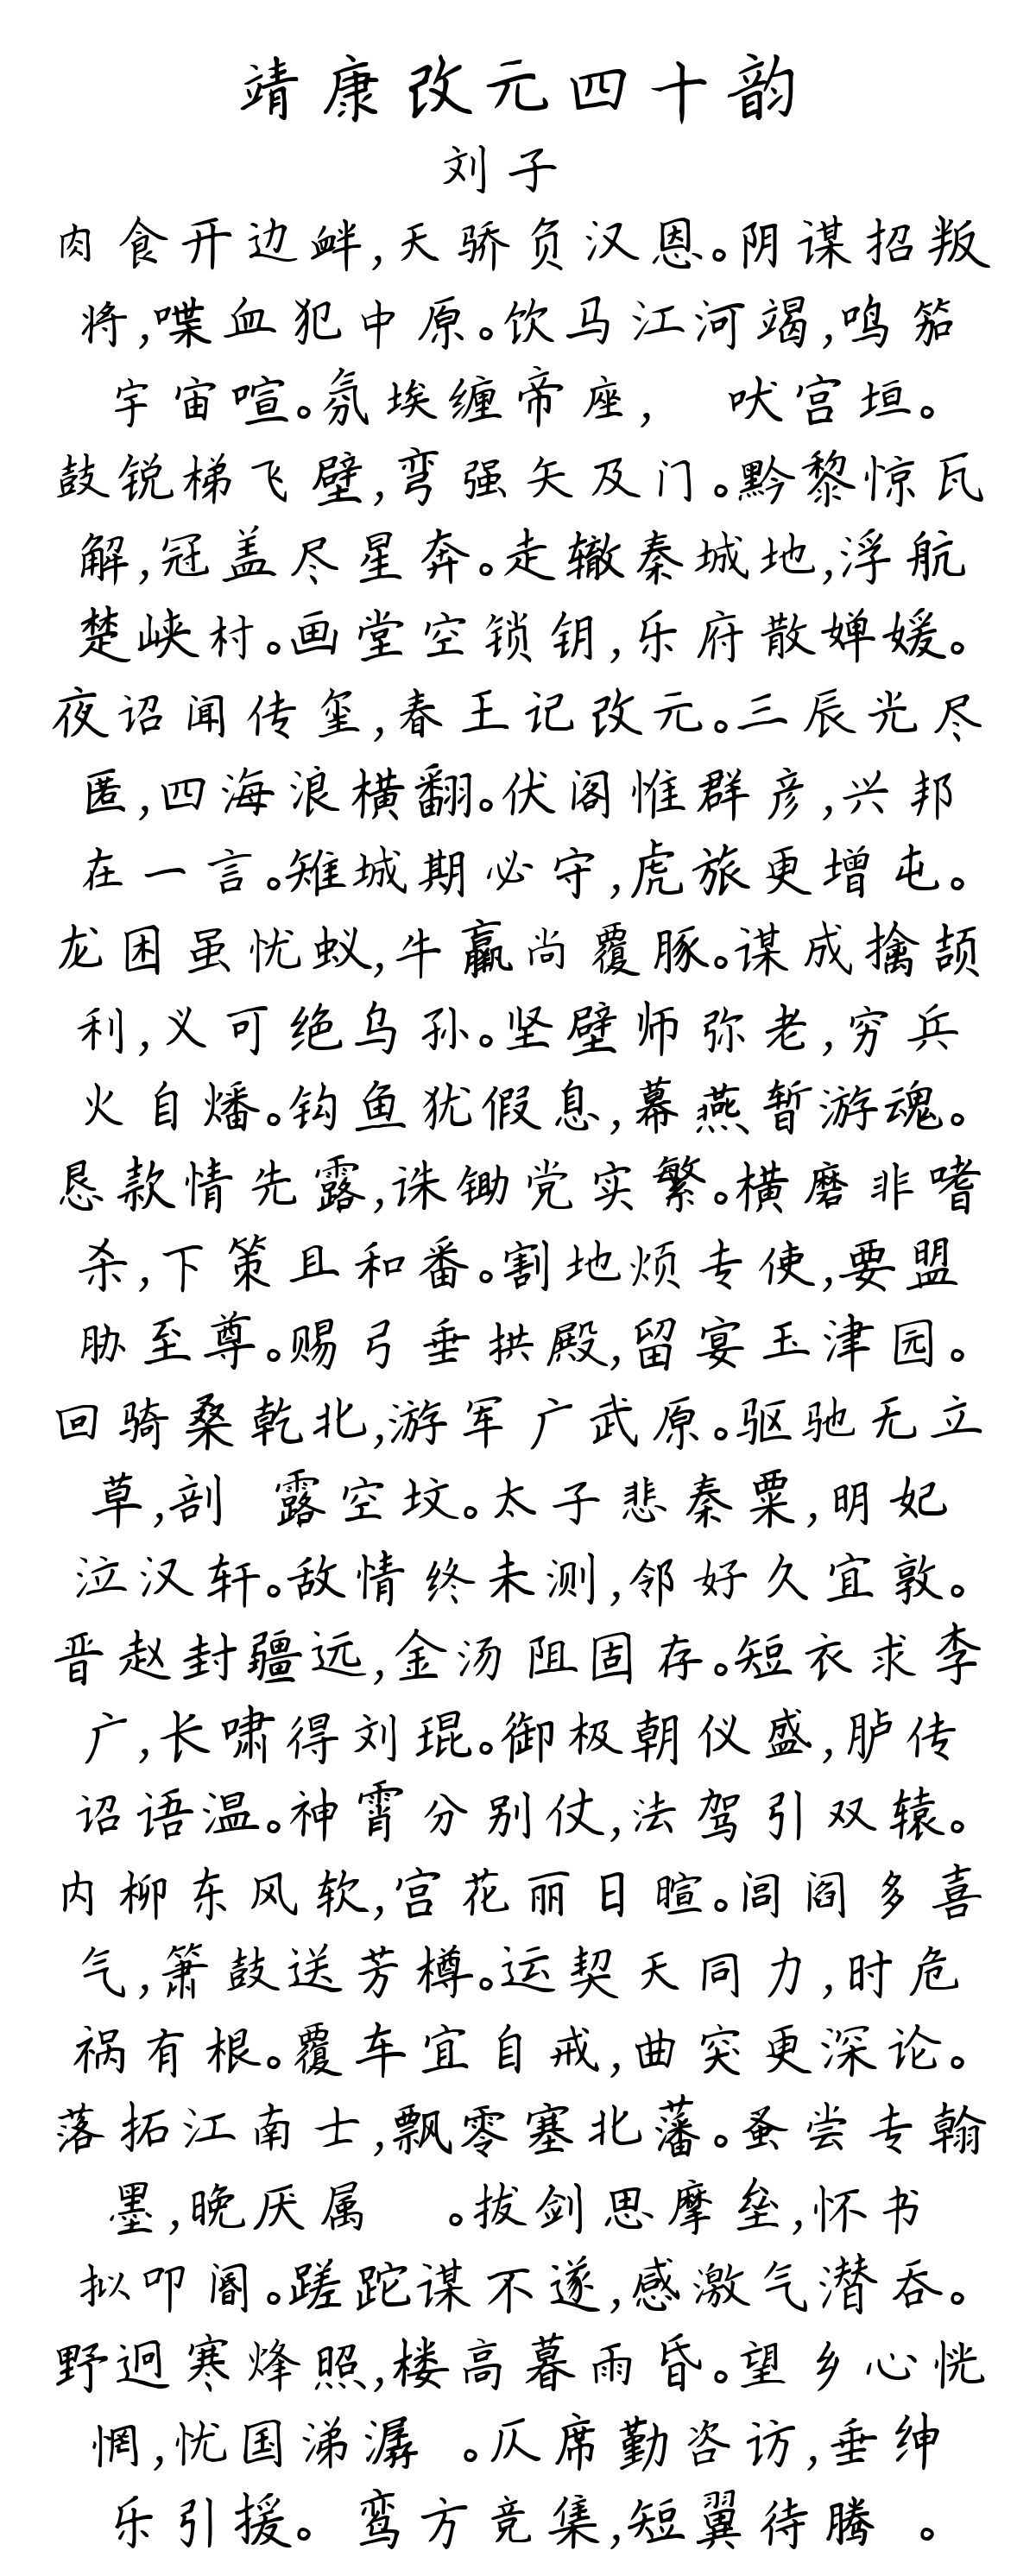 靖康改元四十韵
刘子
肉食开边衅,天骄负汉恩。阴谋招叛
将,喋血犯中原。饮马江河竭,鸣笳
宇宙喧。氛埃缠帝座, 吠宫垣。
鼓锐梯飞壁,弯强矢及门。黔黎惊瓦
解,冠盖尽星奔。走辙秦城地,浮航
楚峡村。画堂空锁钥,乐府散婵媛。
夜诏闻传玺,春王记改元。三辰光尽
匿,四海浪横翻。伏阁惟群彦,兴邦
在一言。雉城期必守,虎旅更增屯。
龙困虽忧蚁,牛羸尚覆豚。谋成擒颉
利,义可绝乌孙。坚壁师弥老,穷兵
火自燔。钩鱼犹假息,幕燕暂游魂。
恳款情先露,诛锄党实繁。横磨非嗜
杀,下策且和番。割地烦专使,要盟
胁至尊。赐弓垂拱殿,留宴玉津园。
回骑桑乾北,游军广武原。驱驰无立
草,剖 露空坟。太子悲秦粟,明妃
泣汉轩。敌情终未测,邻好久宜敦。
晋赵封疆远,金汤阻固存。短衣求李
广,长啸得刘琨。御极朝仪盛,胪传
诏语温。神霄分别仗,法驾引双辕。
内柳东风软,宫花丽日暄。闾阎多喜
气,箫鼓送芳樽。运契天同力,时危
祸有根。覆车宜自戒,曲突更深论。
落拓江南士,飘零塞北藩。蚤尝专翰
墨,晚厌属 。拔剑思摩垒,怀书
拟叩阍。蹉跎谋不遂,感激气潜吞。
野迥寒烽照,楼高暮雨昏。望乡心恍
惘,忧国涕潺 。仄席勤咨访,垂绅
乐引援。 鸾方竞集,短翼待腾 。